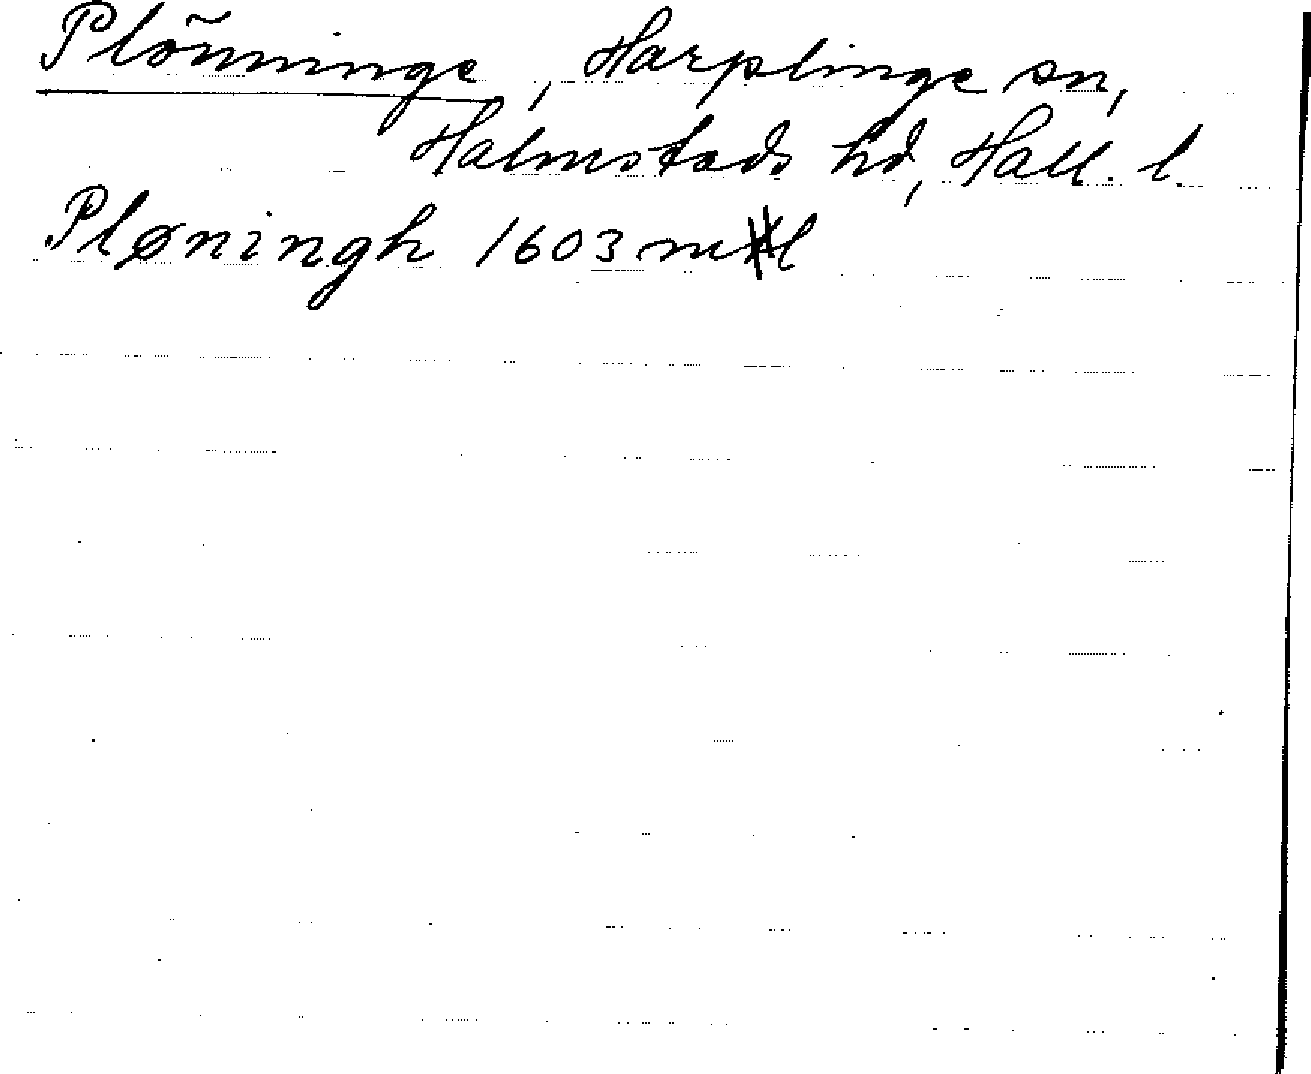 Plönninge, Harplinge sn,
Halmstads hd, Hall. l.
Pløningh 1603